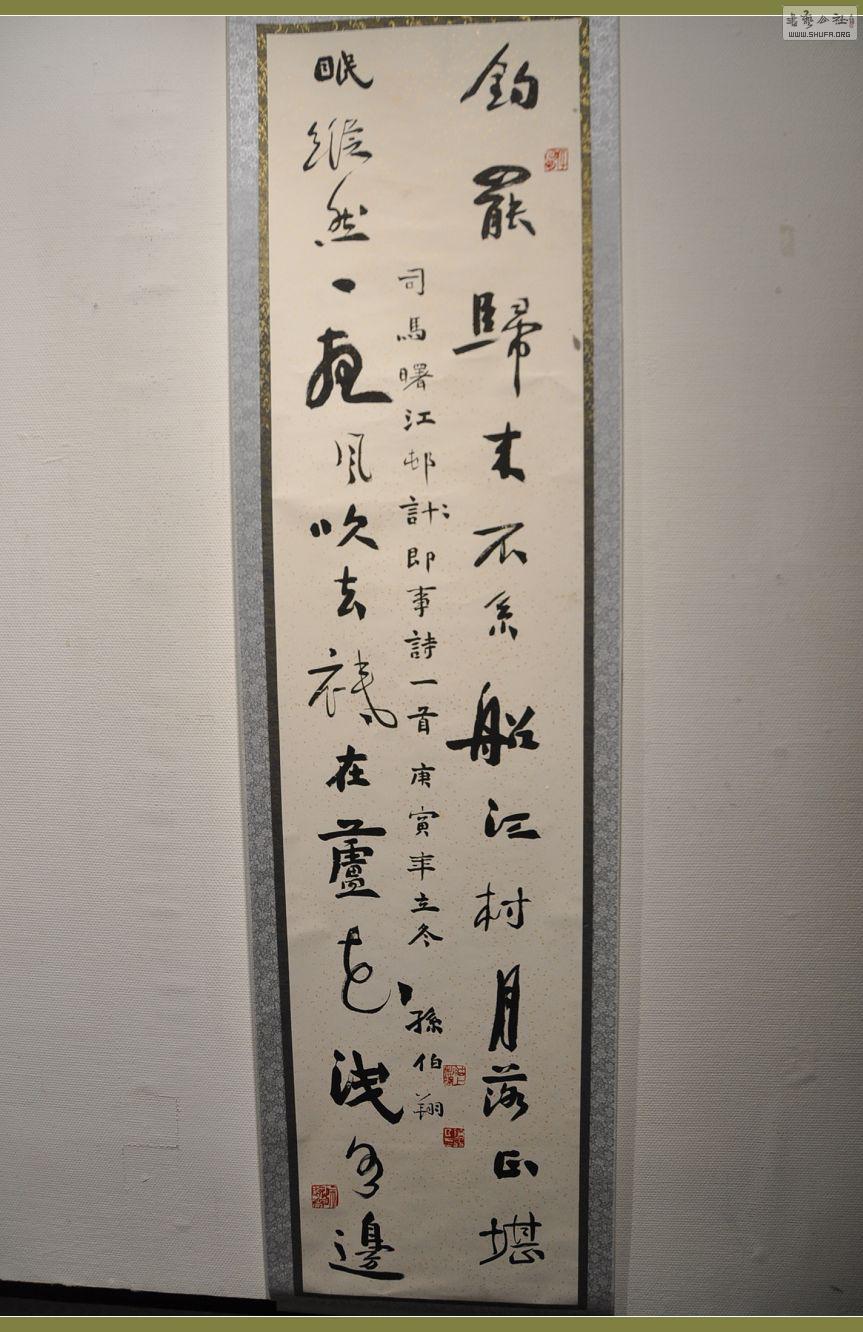 釣罷歸来不系船江村月落正堪
眠縱然一夜风吹去祇在蘆花浅水邊
司馬曙江邨計即事詩一首 庚寅年立冬 孫伯翔
书艺公社
WWW.SHUFA.ORG